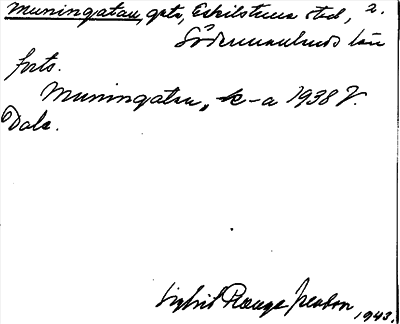 Muningatan, gata, Eskilstuna stad, 2.
Södermanlands län
forts.
Muningatan, k-a 1938 V.
Dala.
Sigbrit Plange Jeason
1943.